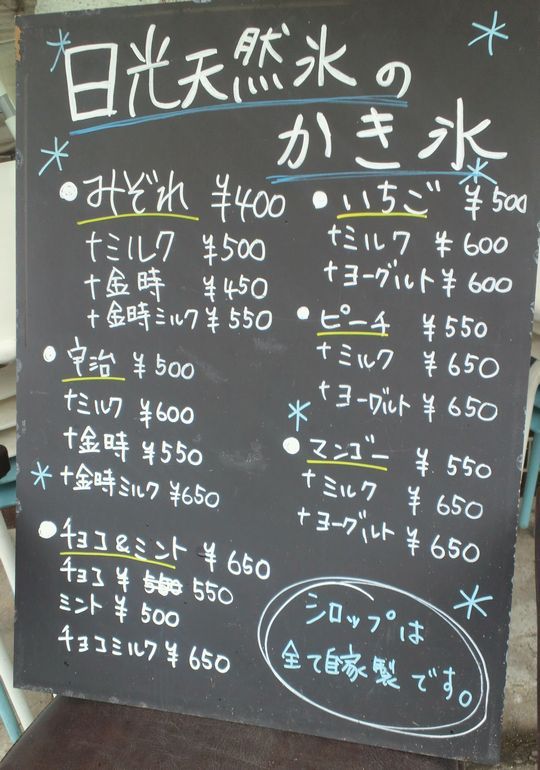 日光天然氷の
かき氷
みぞれ ¥400
+ミルク ¥500
+金時 ¥450
+金時ミルク ¥550
宇治 ¥500
+ミルク ¥600
+金時 ¥550
+金時ミルク ¥650
チョコ&ミント ¥650
チョコ ¥ 550
ミント ¥500
チョコミルク ¥650
いちご ¥500
+ミルク ¥600
+ヨーグルト ¥600
ピーチ ¥550
+ミルク ¥650
+ヨーグルト ¥650
マンゴー ¥550
+ミルク ¥650
+ヨーグルト ¥650
シロップは
全て自家製です。